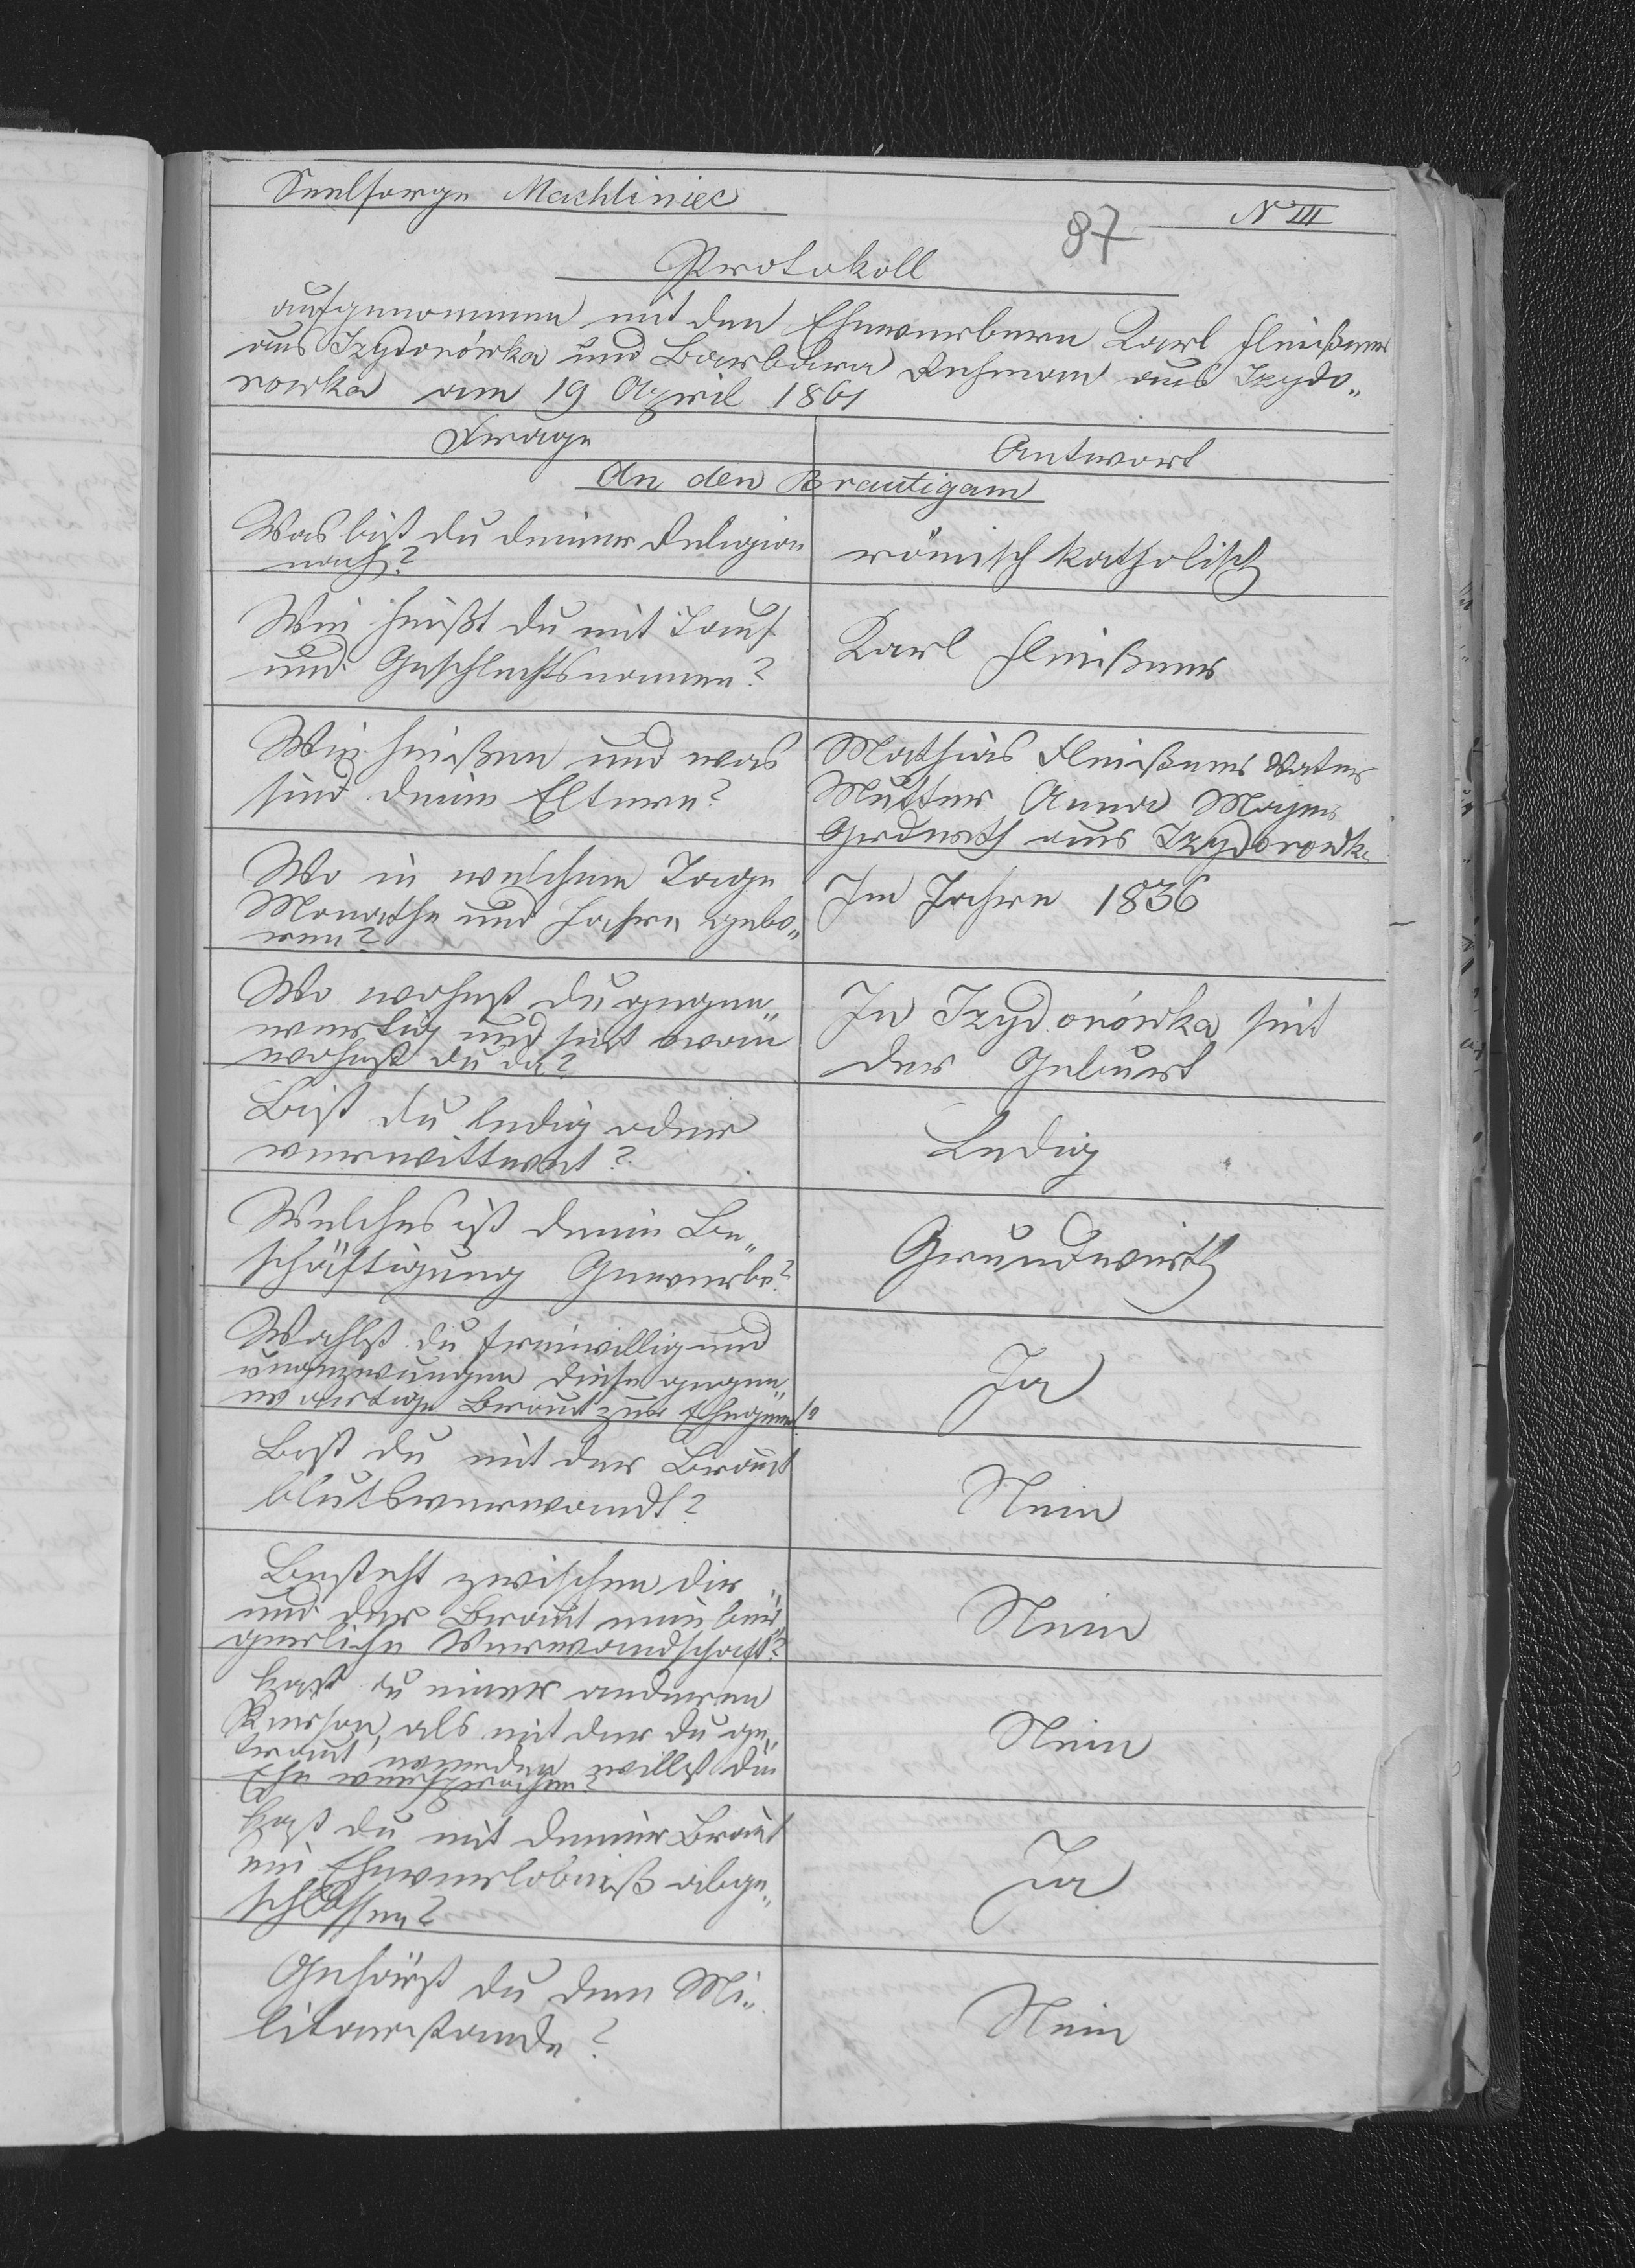 Seelsorge Machliniec
N III
87
Protokoll
aufgenommen mit den Ehewerbern Karl Fleißner
aus Izydorówka und Barbara Rehman aus Izydo„
rowka am 19 April 1861
Frage
Antwort
An den Brautigam
Was bist du deiner Religion
nach?
römisch katholisch
Wie heißt du mit Tauf
und Geschlechtsnamen?
Karl Fleißner
Wie heißen und was
sind deine Eltern?
Mathias Fleißner Vater
Mutter Anna Mayer
aus Izydorowka
Wo in welchem Tage
Monathe und Jahre gebo„
ren?
Im Jahre 1836
Wo wohnst du gegen„
wertig und seit wan
wohnst du da?
In Izydorówka seit
der Geburt
Bist du ledig oder
verwittwet?
Ledig
Welches ist deine Be„
schäftigung Gewerbe?
Grundwirth
Wahlst du freiwillig und
ungezwungen diese gegen„
wartige Braut zur
Ja
Bist du mit der Braut
blutsverwandt?
Nein
Besteht zwischen dir
und der Braut eine bür„
gerliche Verwandschaft?
Nein
Hast du einer anderen
Person, als mit der du ge„
traut werden willst die
Ehe versprochen?
Nein
Hast du mit deiner Braut
ein Eheverlöbniß abge„
schlossen?
Ja
Gehörst du dem Mi„
litarstande?
Nein